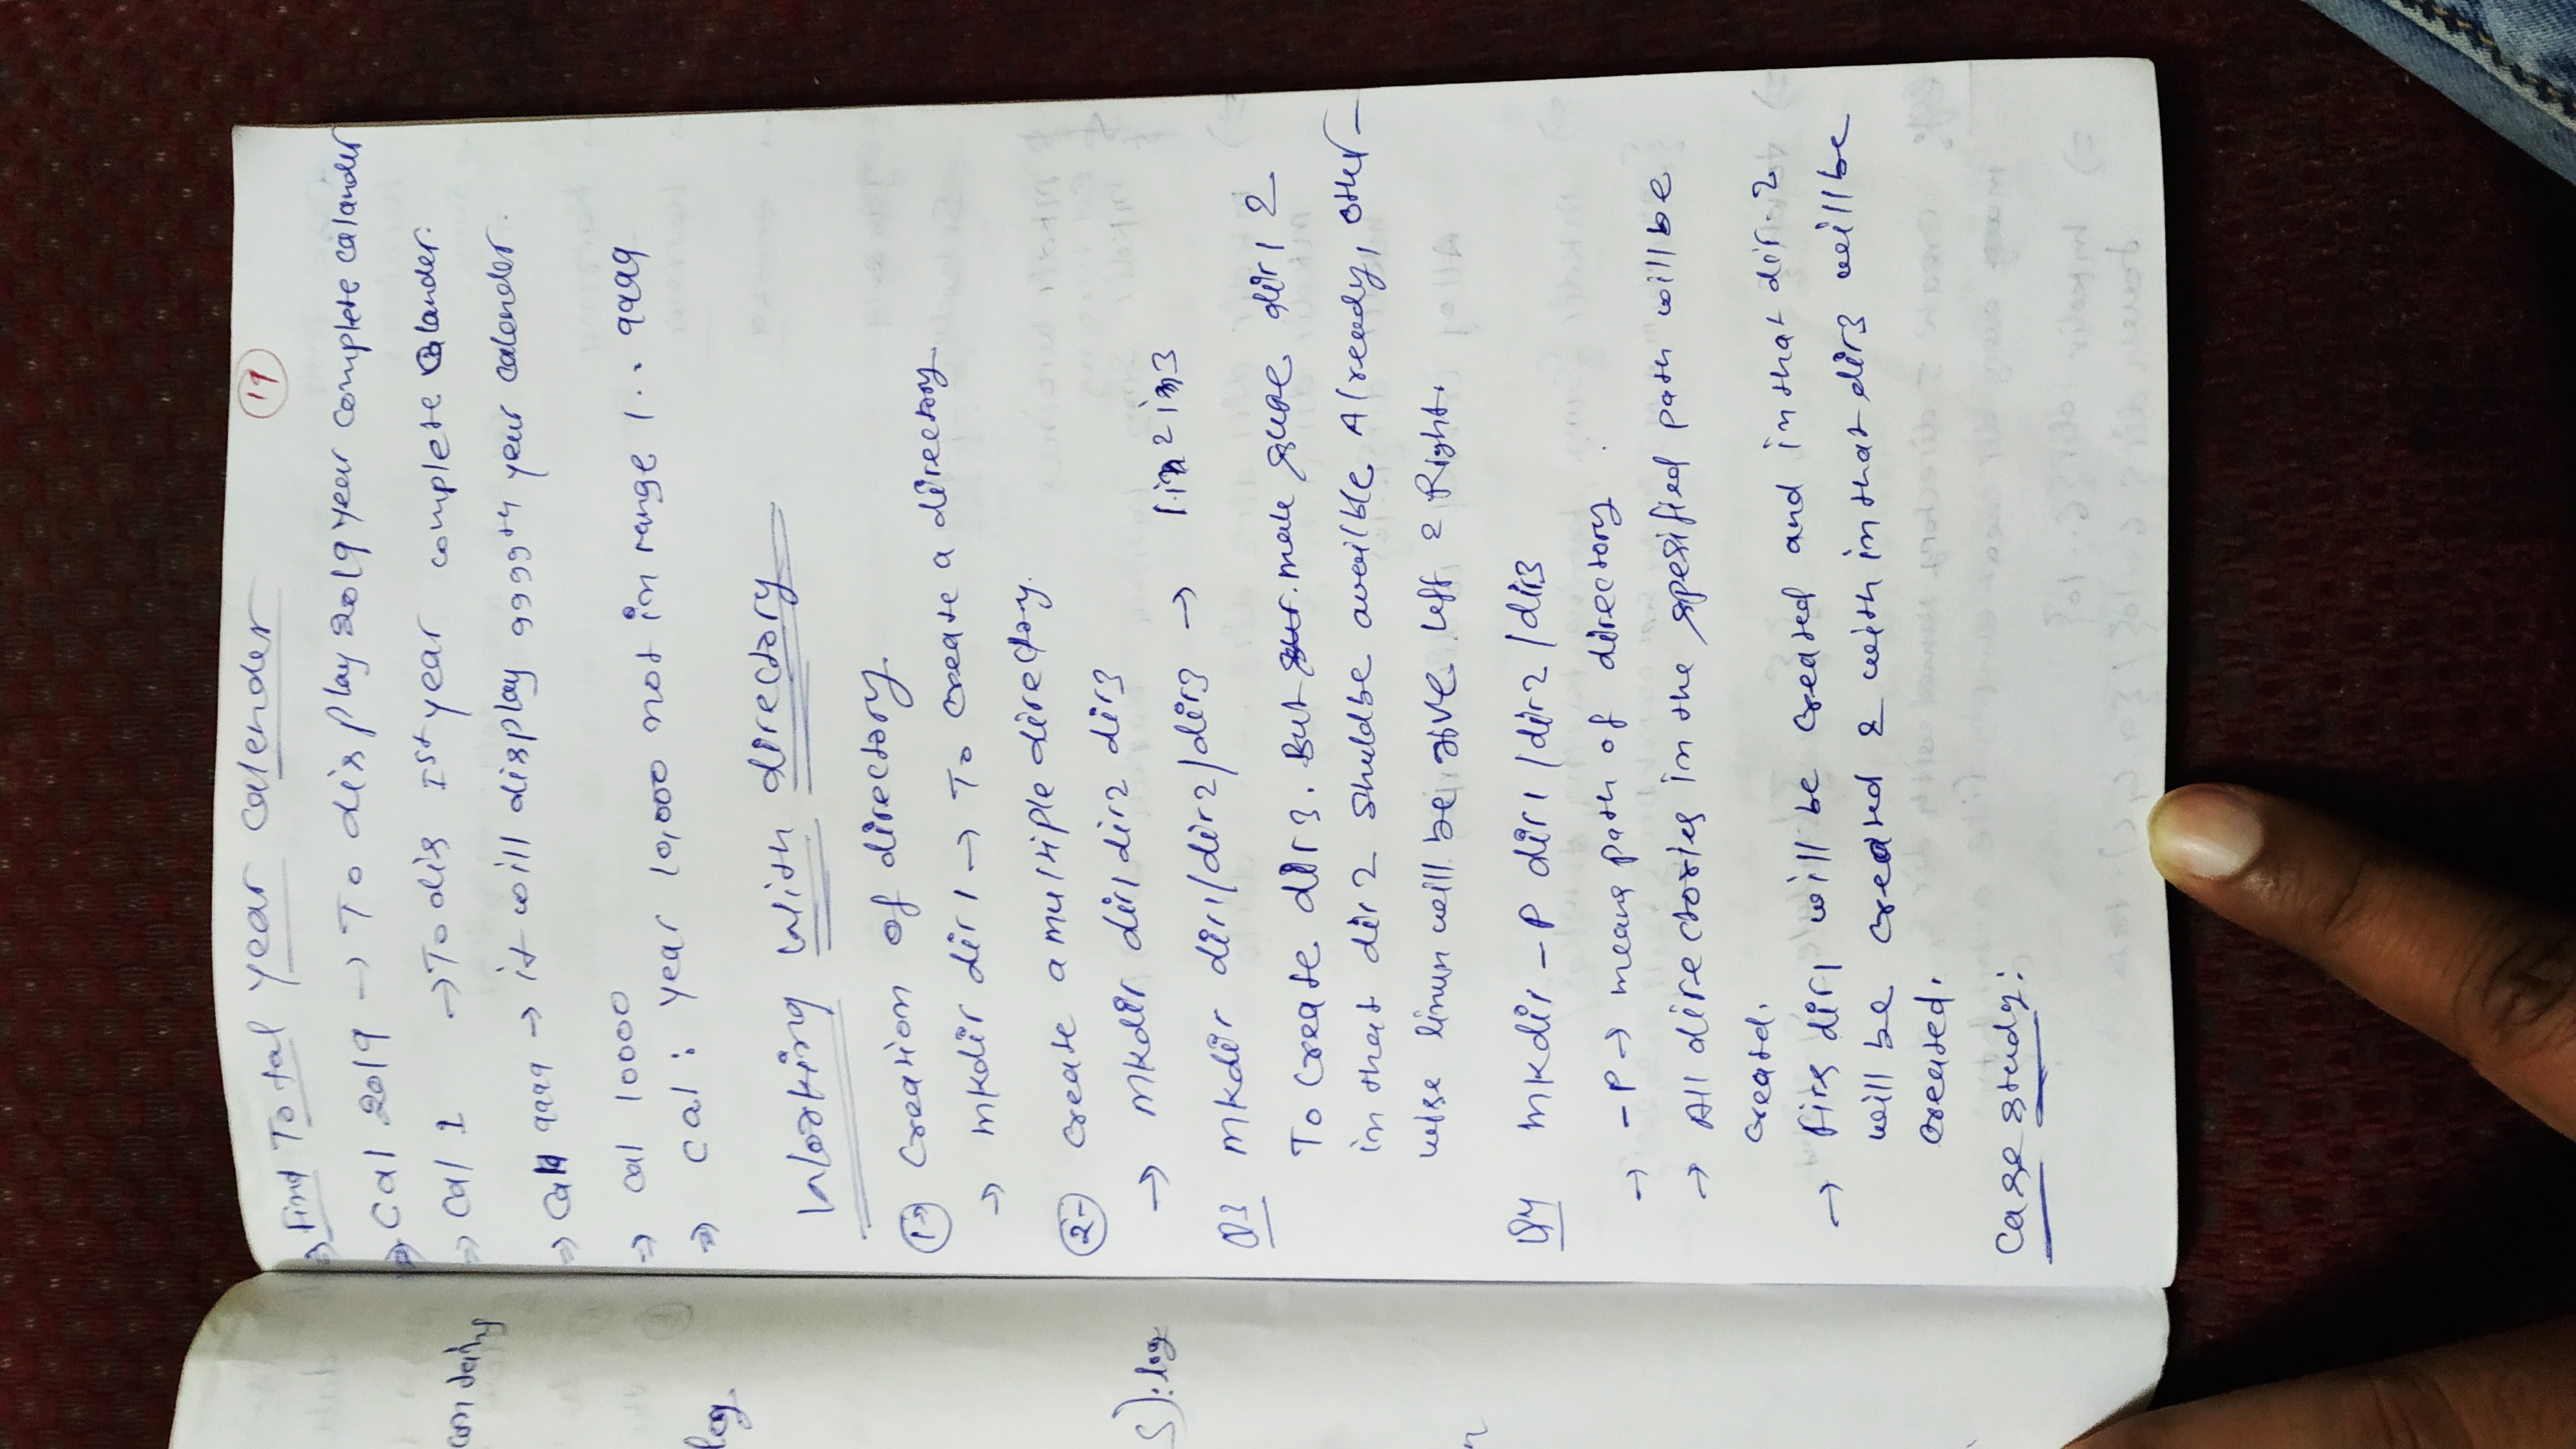 19
⇒ Find Total year calender
⇒ Cal 2019 → To display 2019 year complete calander
⇒ Cal 1 → To dis Ist year complete calander.
⇒ Cal 9999 → it will display 9999th year calender.
⇒ cal 10000
⇒ cal : year 10,000 not in range 1.. 9999
Working with directory
1→ Creation of directory.
→ mkdir dir1 → To create a directory
2- create a multiple directory.
→ mkdir dir1 dir2 dir3
Q3 mkdir dir1/dir2/dir3 → 1 in 2 in 3
To create dir3. But make sure dir1 &
in that dir2 shuldbe availble Already, other-
wise linux will be give left & Right.
Q4 mkdir -P dir1 /dir2 /dir3
→ -P → means path of directory.
→ All directories in the spesified path will be
created.
→ Firs dir1 will be created and in that dir-2
will be created & with in that dir3 will be
created.
Case study:
log
S).log